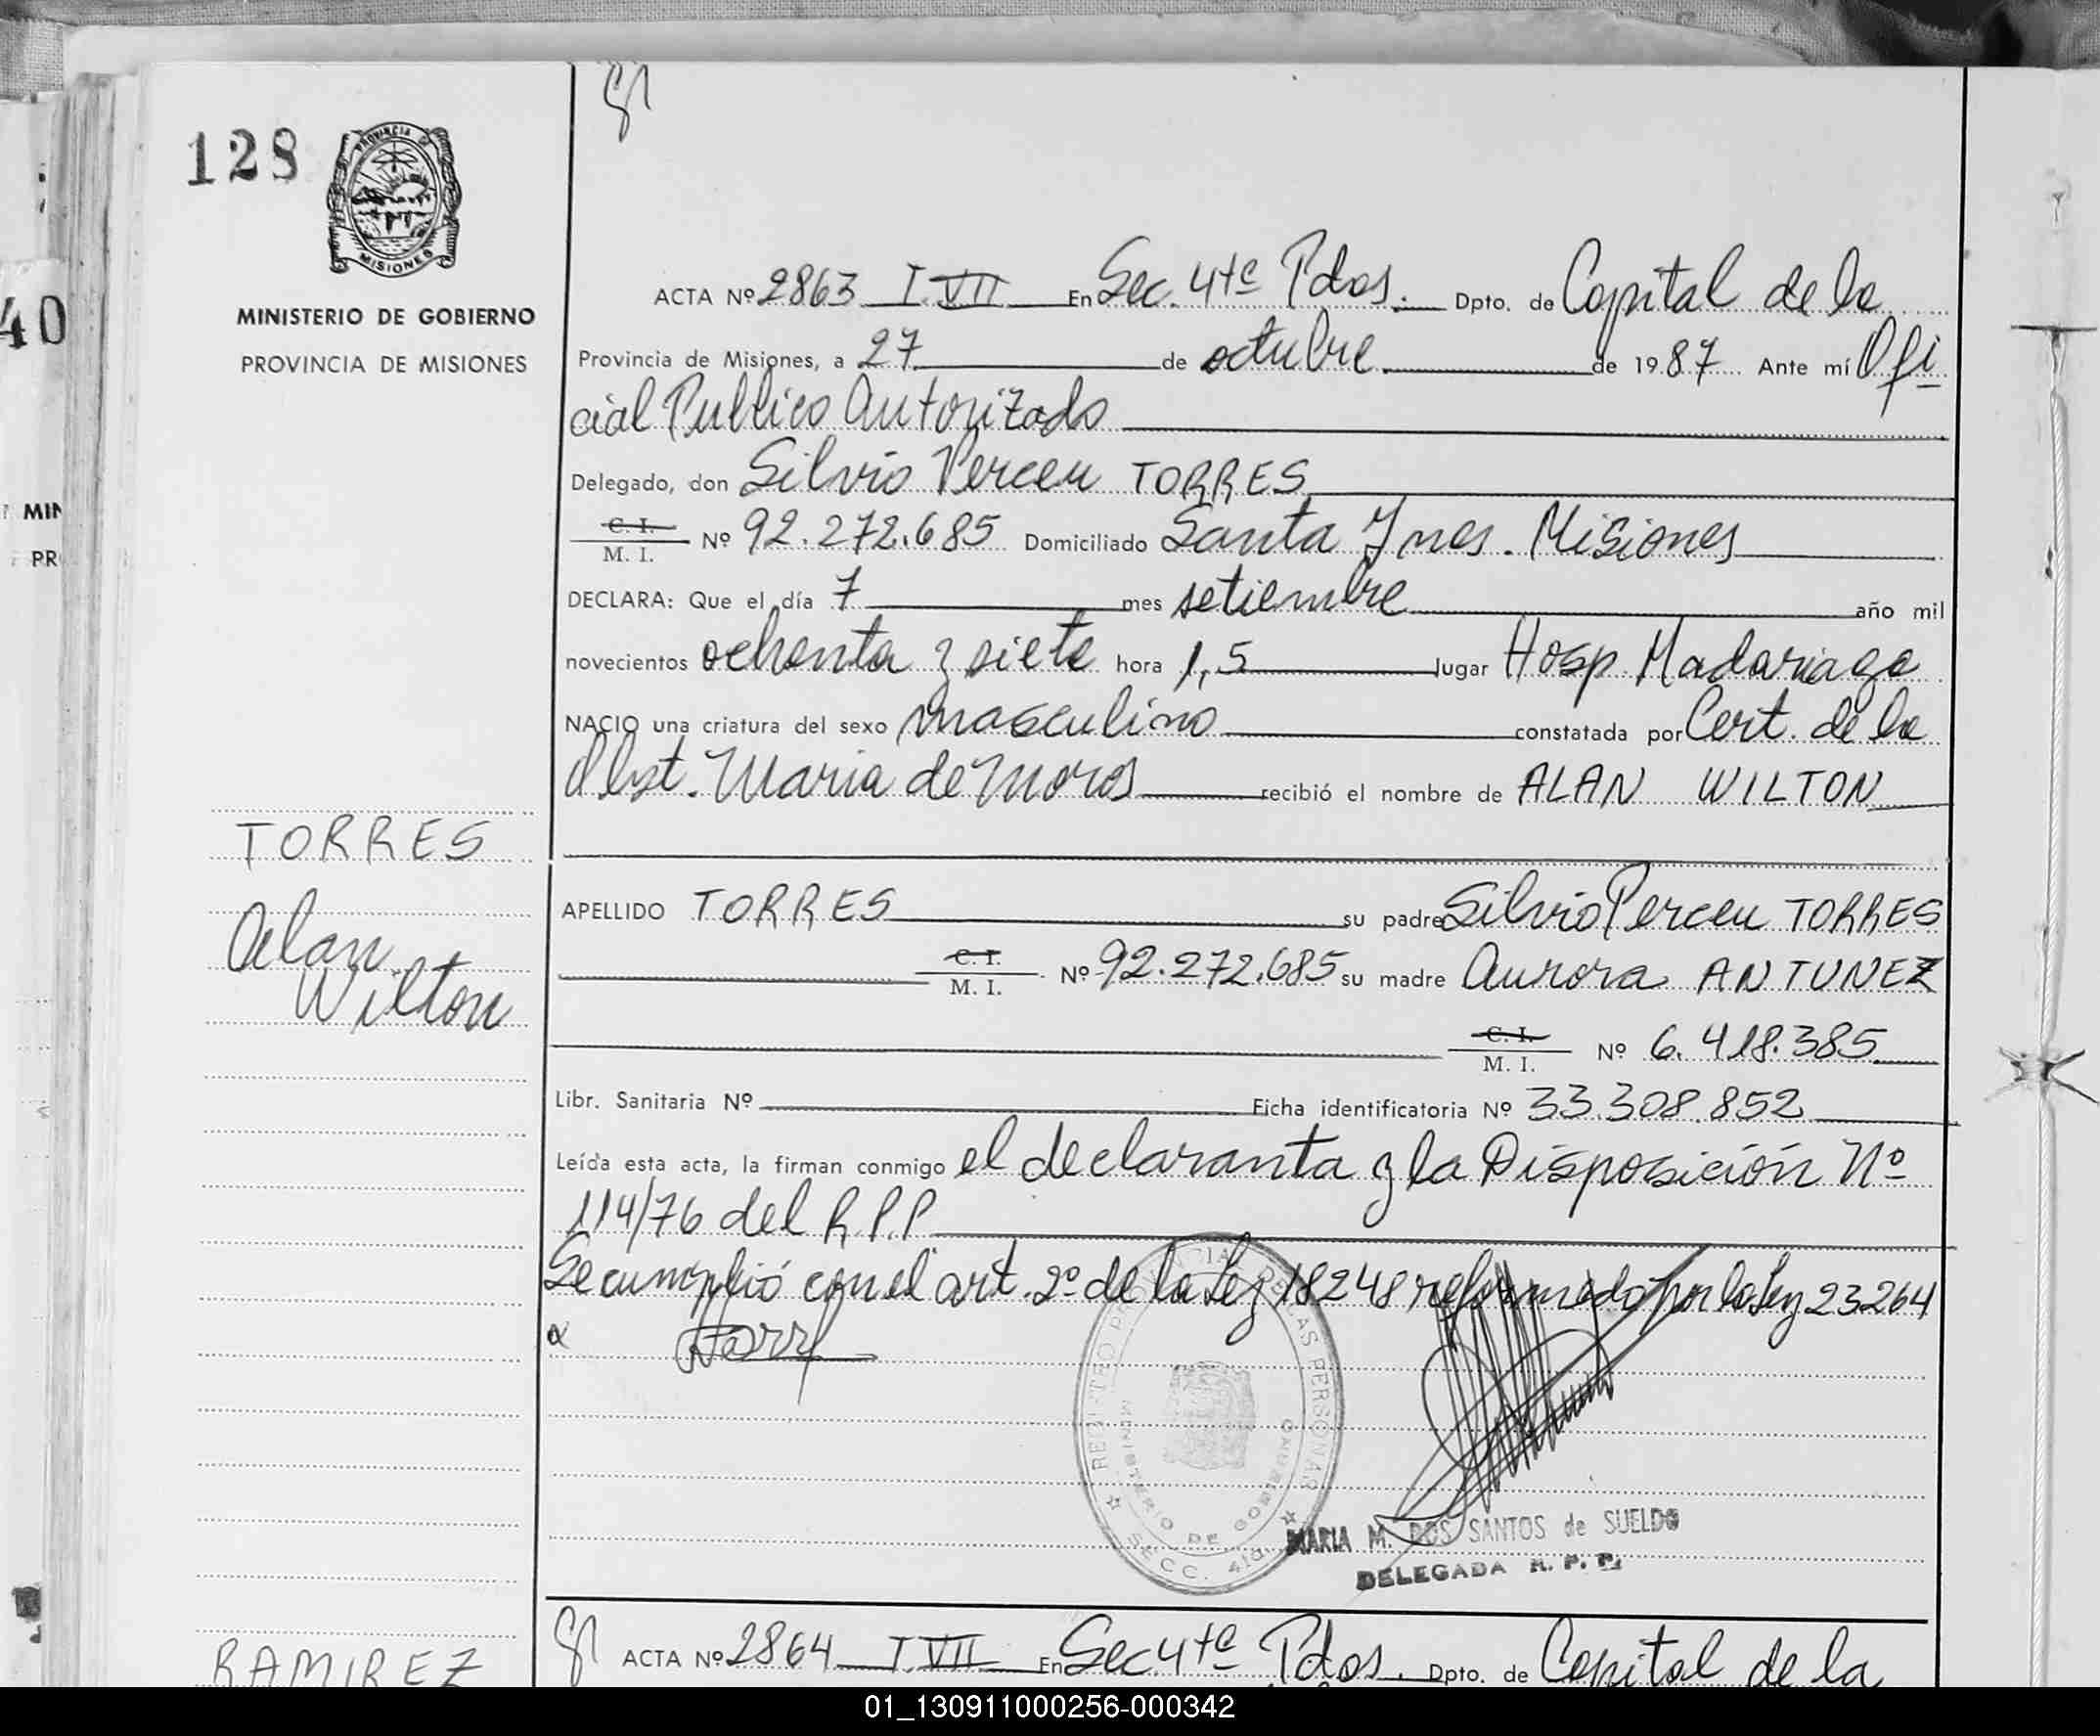 128
PROVINCIA DE
MISIONES
MINISTERIO DE GOBIERNO
PROVINCIA DE MISIONES
40
MIN
PR
ACTA Nº 2863 T. VII En Sec. 4ta Pdas. Dpto. de Capital de la
Provincia de Misiones, a 27 de octubre de 1987 Ante mí Ofi
cial Publico Autorizado
Delegado, don Silvio Perceu TORRES
C. I.
M. I. Nº 92.272.685 Domiciliado Santa Ynes. Misiones
DECLARA: Que el día 7 mes setiembre año mil
novecientos ochenta y siete hora 1,5 lugar Hosp. Madariaga
NACIO una criatura del sexo masculino constatada por Cert. de la
Obst. Maria de Moros recibió el nombre de ALAN WILTON
TORRES
Alan
Wilton
APELLIDO TORRES su padre Silvio Perceu TORRES
C. I.
M. I. Nº 92.272.685 su madre Aurora ANTUNEZ
C. I.
M. I. Nº 6.418.385
Libr. Sanitaria Nº Ficha identificatoria Nº 33.308.852
Leída esta acta, la firman conmigo el declaranta y la Disposición Nº
114/76 del R.P.P
Se cumplió con el art. 2º de la Ley 18248 reformado por la Ley 23264
REGISTRO PROVINCIAL DE LAS PERSONAS
MINISTERIO DE GOBIERNO
SECC. 4ta
MARIA M. DOS SANTOS de SUELDO
DELEGADA R. P. P.
RAMIREZ
ACTA Nº 2864 T. VII En Sec 4ta Pdas. Dpto. de Capital de la
01_130911000256-000342